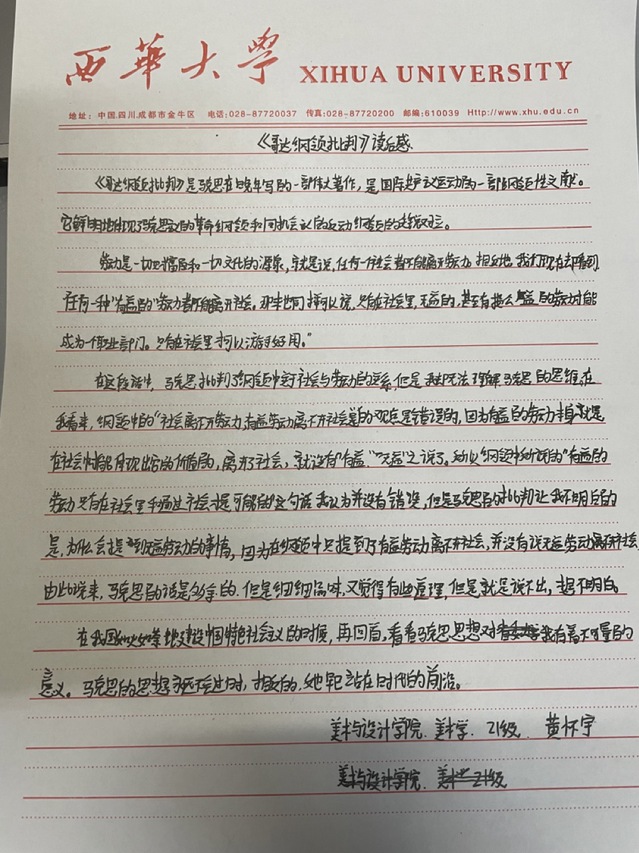 西華大学 XIHUA UNIVERSITY
地址：中国.四川.成都市金牛区 电话:028-87720037 传真:028-87720200 邮编:610039 Http://www.xhu.edu.cn
《哥达纲领批判》读后感
《哥达纲领批判》是马克思在晚年写的一部伟大著作，是国际共产主义运动的一部纲领性文献。
它鲜明地体现了马克思主义的革命纲领和同机会主义的反动纲领的对立。
劳动是一切财富和一切文化的源泉，这就是说，任何一个社会都不能离开劳动。相反地，我们现在却看到
任有一种"有益的"劳动都不能离开社会，那末也同样可以说，只有在社会里，无益的，甚至有损公益的劳动才能
成为一个职业部门。只有在社会里才可以游手好闲。"
在这段话中，马克思批判了纲领中对社会与劳动的关系，但是我无法理解马克思的思维，在
我看来，纲领中的"社会离不开劳动，有益劳动离不开社会的观点是错误的，因为有益的劳动本身就是
在社会中才能体现出它的价值的，离开了社会，就没有"有益""无益"之说了。所以纲领中所说的"有益的
劳动只有在社会里和通过社会才是可能的"这句话我认为并没有错误，但是马克思的批判让我不明白的
是，为什么会提到无益劳动的事情，因为在纲领中只提到了有益劳动离不开社会，并没有说无益劳动离不开社会
由此说来，马克思的话是多余的。但是细细品味，又觉得有些道理，但是就是说不出，想不明白。
在我国如火如荼地建设中国特色社会主义的时候，再回首，看看马克思思想对我有着不可量的
意义。马克思的思想永远不会过时，相反的，她早已站在时代的前沿。
美术与设计学院 美术学 21级 黄怀宇
美术与设计学院 21级